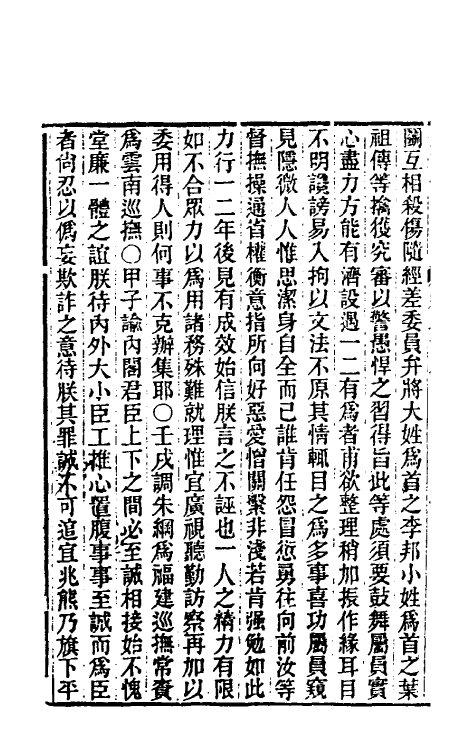 鬭互相殺傷隨經差委員弁將大姓爲首之李邦小姓爲首之葉
祖傳等擒獲究審以警愚悍之習得旨此等處須要鼓舞屬員實
心盡力方能有濟設遇一二有爲者甫欲整理稍加振作緣耳目
不明讒謗易入拘以文法不原其情輒目之爲多事喜功屬員窺
見隱微人人惟思潔身自全而已誰肯任怨冒愆勇往向前汝等
督撫操通省權衡意指所向好惡愛憎關繫非淺若肯强勉如此
力行一二年後見有成效始信朕言之不誣也一人之精力有限
如不合眾力以爲用諸務殊難就理惟宜廣視聽勤訪察再加以
委用得人則何事不克辦集耶○壬戌調朱綱爲福建巡撫常賚
爲雲南巡撫○甲子諭內閣君臣上下之間必至誠相接始不愧
堂廉一體之誼朕待內外大小臣工推心置腹事事至誠而爲臣
者尙忍以僞妄欺詐之意待朕其罪誠不可逭宜兆熊乃旗下平